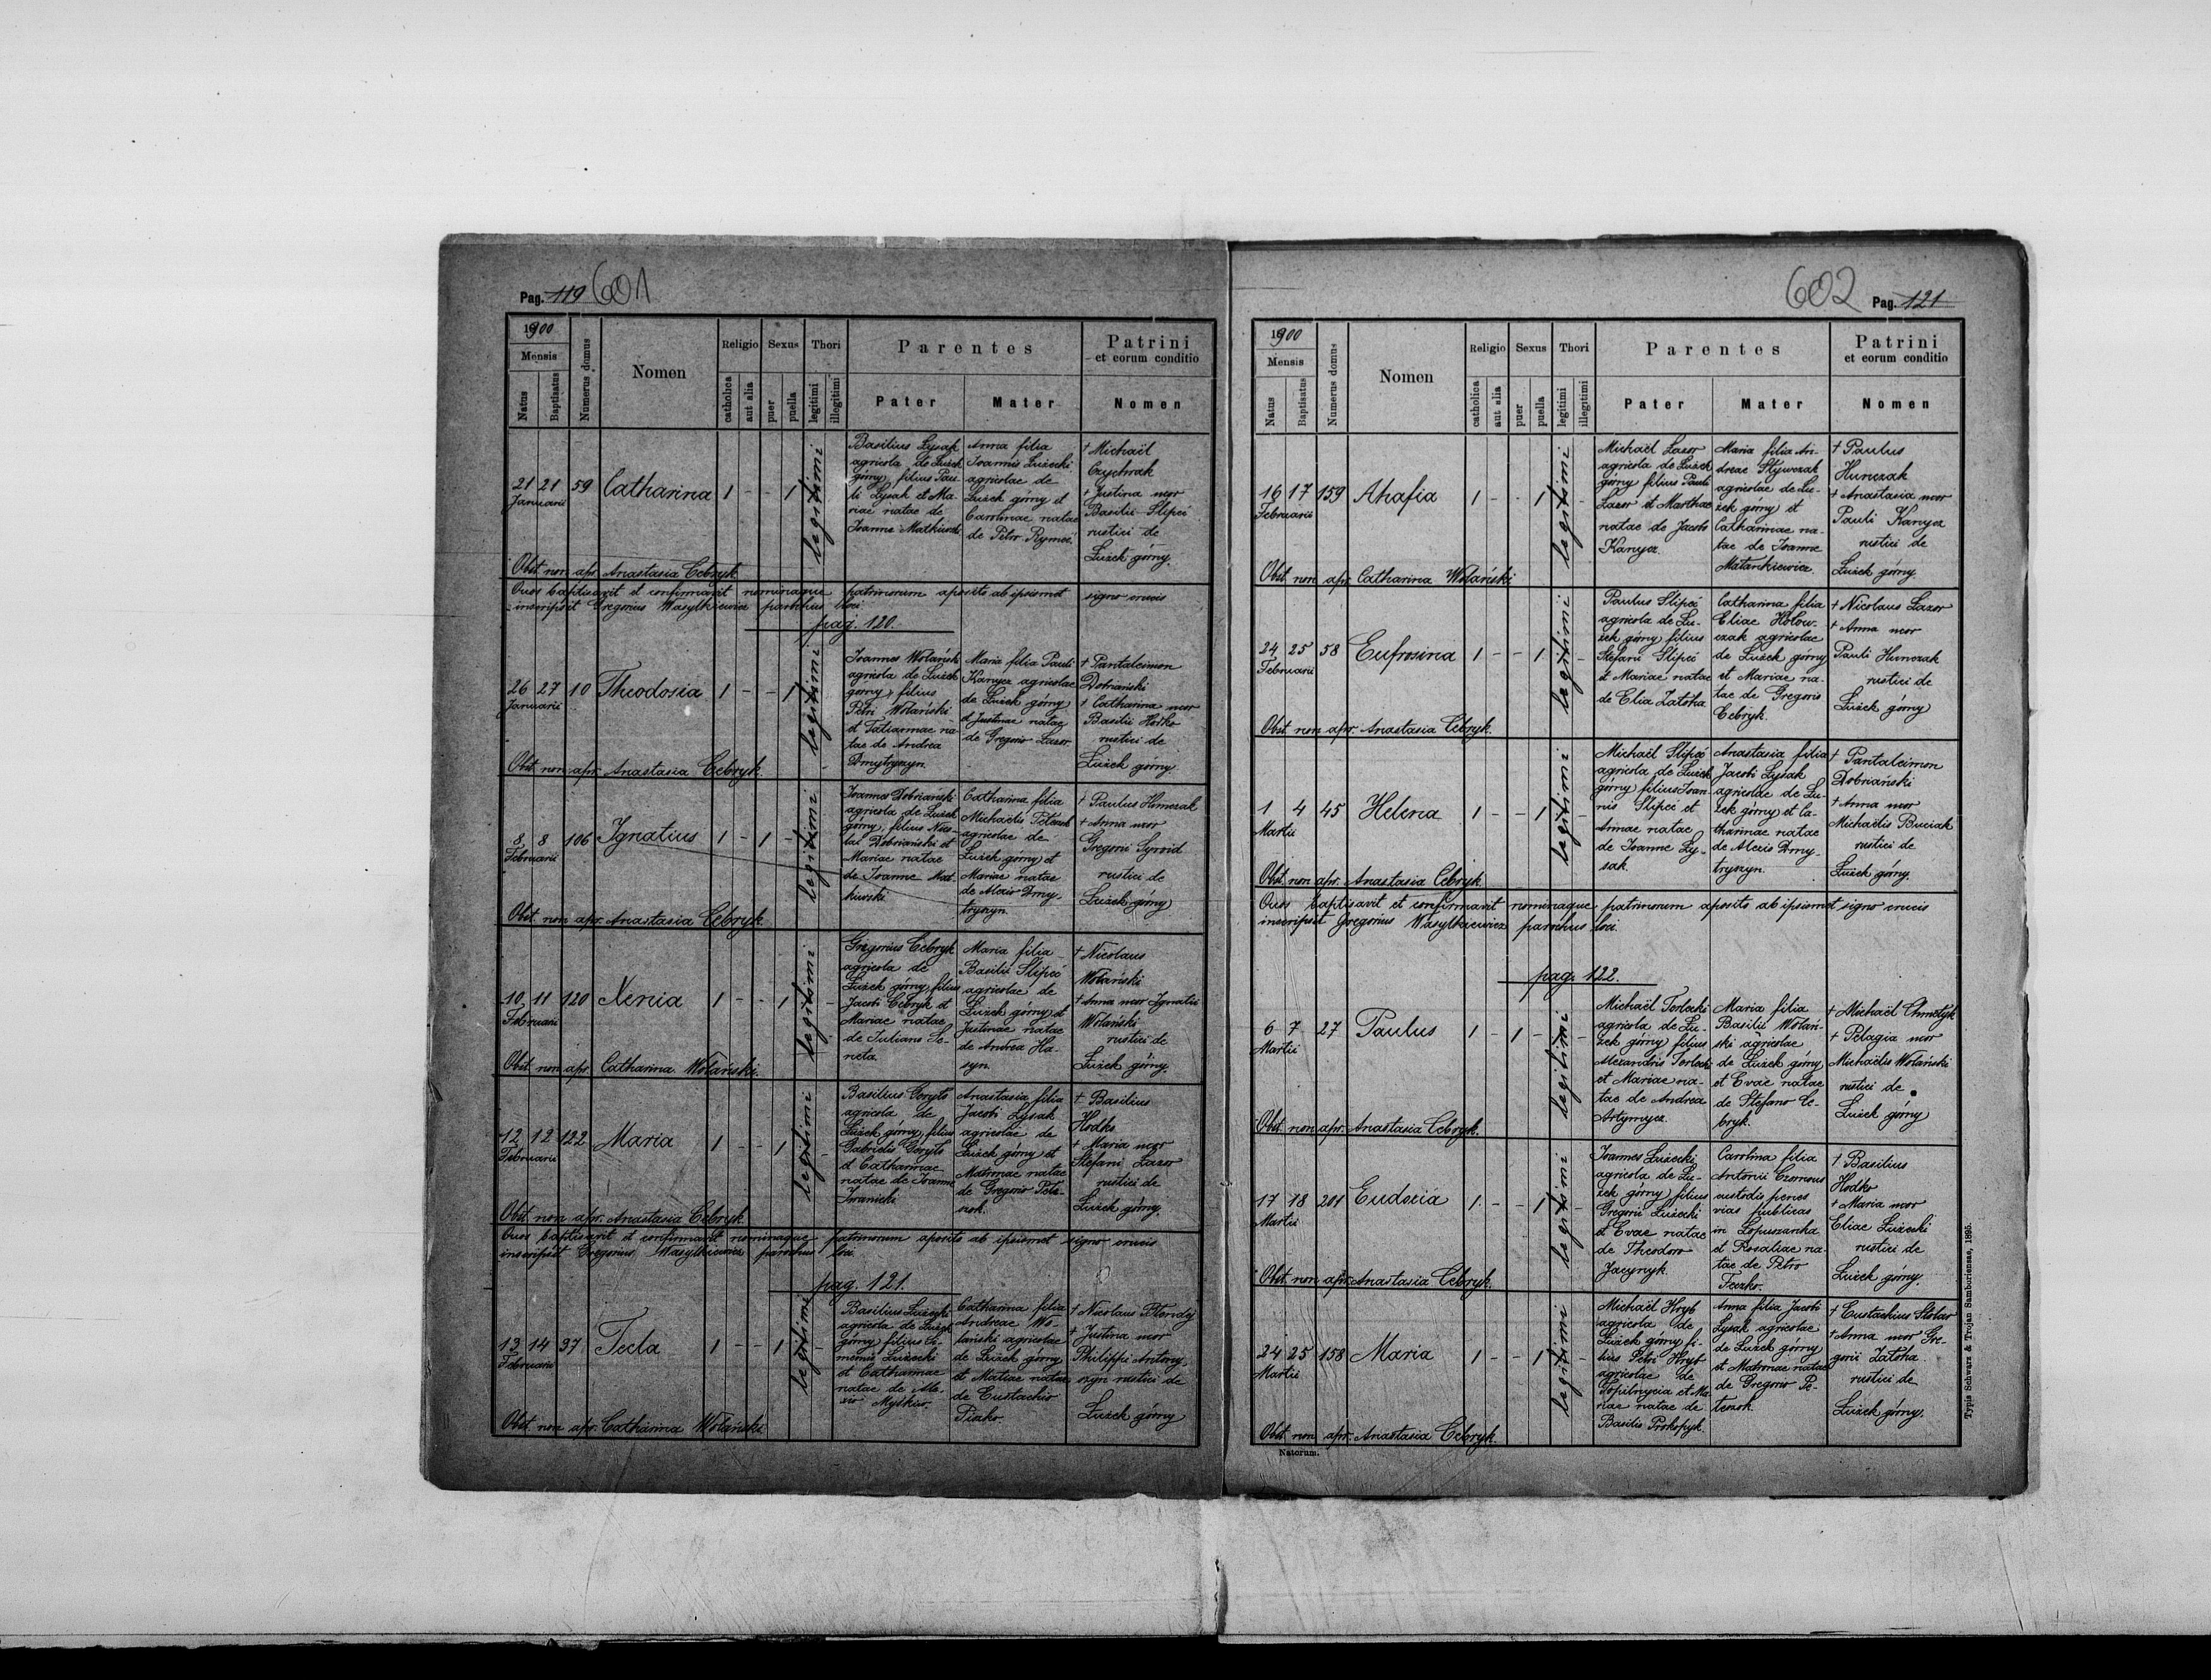 Pag. 119 601
1900
Mensis
Natus
Baptisatus
Numerus domus
Nomen
Religio
catholica
aut alia
Sexus
puer
puella
Thori
legitimi
illegitimi
Parentes
Pater
Mater
Patrini
et eorum conditio
Nomen
21 21 59 Catharina 1 - - 1 legitimi
Januarii
Basilius Łysak
agricola de Łużek
górny, filius Pau-
li Łysak et Ma-
riae natae de
Joanne
Anna filia
Joannis Łużecki
agricolae de
Łużek górny et
Carolinae natae
de Petro
† Michaël
† Justina uxor
Basilii Slipeć
rustici de
Łużek górny.
Obst. non apr. Anastasia Cebryk
Quos baptisavit et confirmavit nominaque patrinorum aposito ab ipsismet signo crucis
inscripsit Gregorius Wasylkiewicz parochus loci.
pag. 120.
26 27 10 Theodosia 1 - - 1 legitimi
Januarii
Joannes Wolański
agricola de Łużek
górny, filius
Petri Wolański
et Tatiannae na-
tae de Andrea
Dmytryszyn.
Maria filia Pauli
Kanycz agricolae
de Łużek górny
et Justinae natae
de Gregorio Lazor.
† Pantaleimon
Dobriański
† Catharina uxor
Basilii Hodko
rustici de
Łużek górny
Obst. non apr. Anastasia Cebryk.
8 8 106 Ignatius 1 - 1 - legitimi
Februarii
Joannes Dobriański
agricola de Łużek
górny, filius Nico-
lai Dobriański et
Mariae natae
de Joanne Mat-
kiwski
Catharina filia
Michaëlis
agricolae de
Łużek górny et
Mariae natae
de Alexio Dmy-
tryszyn.
† Paulus Hunczak
† Anna uxor
Gregorii Syroid
rustici de
Łużek górny
Obst. non apr. Anastasia Cebryk.
10 11 120 Xenia 1 - - 1 legitimi -
Februarii
Gregorius Cebryk
agricola de
Łużek górny, filius
Jacobi Cebryk et
Mariae natae
de Juliano Se-
neta.
Maria filia
Basilii Slipeć
agricolae de
Łużek górny et
Justinae natae
de Andrea Ha-
syn.
† Nicolaus
Wolański
† Anna uxor Ignatii
Wolański
rustici de
Łużek górny.
Obst. non apr. Catharina Wolański.
12 12 122 Maria 1 - - 1 legitimi -
Februarii
Basilius Goryls
agricola de
Łużek górny, filius
Gabrielis Goryls
et Catharinae
natae de Joanne
Iwanicki
Anastasia filia
Jacobi Łysak
agricolae de
Łużek górny et
Matronae natae
de Gregorio Pete-
† Basilius
Hodko
† Maria uxor
Stefani Lazor
rustici de
Łużek górny.
Obst. non apr. Anastasia Cebryk.
Quos baptisavit et confirmavit nominaque patrinorum aposito ab ipsismet signo crucis
inscripsit Gregorius Wasylkiewicz parochus loci.
pag. 121.
13 14 37 Tecla 1 - - 1 legitimi -
Februarii
Basilius Łużecki
agricola de Łużek
górny, filius Si-
meonis Łużecki
et Catharinae
natae de Ale-
xio
Catharina filia
Andreae Wo-
lański agricolae
de Łużek górny
et Matiae natae
de Eustachio
† Nicolaus
† Justina uxor
Philippi Antony-
szyn rustici de
Łużek górny
Obst. non apr. Catharina Wolański.
602 Pag. 121
1900
Mensis
Natus
Baptisatus
Numerus domus
Nomen
Religio
catholica
aut alia
Sexus
puer
puella
Thori
legitimi
illegitimi
Parentes
Pater
Mater
Patrini
et eorum conditio
Nomen
16 17 159 Ahafia 1 - - 1 legitimi -
Februarii
Michaël Lazor
agricola de Łużek
górny filius Pauli
Lazor et Marthae
natae de Jacobo
Kanycz.
Maria filia An-
dreae
agricolae de Łu-
żek górny et
Catharinae na-
tae de Joanne
Matankiewicz.
† Paulus
Hunczak
† Anastasia uxor
Pauli Kanycz
rustici de
Łużek górny.
Obst. non apr. Catharina Wolański
24 25 58 Eufrosina 1 - - 1 legitimi -
Februarii
Paulus Slipeć
agricola de Łu-
żek górny, filius
Stefani Slipeć
et Mariae natae
de Elia Zatoka.
Catharina filia
Eliae Hołow-
czak agricolae
de Łużek górny
et Mariae na-
tae de Gregorio
Cebryk.
† Nicolaus Lazor
† Anna uxor
Pauli Hunczak
rustici de
Łużek górny
Obst. non apr. Anastasia Cebryk.
1 4 45 Helena 1 - - 1 legitimi -
Martii
Michaël Slipeć
agricola de Łużek
górny, filius Joan-
nis Slipeć et
Annae natae
de Joanne Ły-
sak.
Anastasia filia
Jacobi Łysak
agricolae de Łu-
żek górny et Ca-
tharinae natae
de Alexio Dmy-
tryszyn.
† Pantaleimon
Dobriański
† Anna uxor
Michaëlis Buciak
rustici de
Łużek górny.
Obst. non apr. Anastasia Cebryk.
Quos baptisavit et confirmavit nominaque patrinorum aposito ab ipsismet signo crucis
inscripsit Gregorius Wasylkiewicz parochus loci.
pag. 122.
6 7 27 Paulus 1 - 1 - legitimi -
Martii
Michaël Terlecki
agricola de Łu-
żek górny, filius
Alexandris Terlecki
et Mariae na-
tae de Andrea
Artymycz.
Maria filia
Basilii Wolań-
ski agricolae
de Łużek górny
et Evae natae
de Stefano Ce-
bryk.
† Michaël Chmelyk
† Pelagia uxor
Michaëlis Wolański
rustici de
Łużek górny
Obst. non apr. Anastasia Cebryk.
17 18 201 Eudoxia 1 - - 1 legitimi -
Martii
Joannes Łużecki
agricola de Łu-
żek górny, filius
Gregorii Łużecki
et Evae natae
de Theodoro
Jacynyk.
Carolina filia
Antonii Czornous
custodis penes
vias publicas
in Łopuszanka
et Rosaliae na-
tae de Petro
Feczko.
† Basilius
Hodko
† Maria uxor
Eliae Łużecki
rustici de
Łużek górny.
Obst. non apr. Anastasia Cebryk.
24 25 158 Maria 1 - - 1 legitimi -
Martii
Michaël Hryb
agricola de
Łużek górny fi-
lius Petri Hryb
agricolae de
Topilnycia et Ma-
riae natae de
Basilio Prokopyk.
Anna filia Jacobi
Łysak agricolae
de Łużek górny
et Matronae natae
de Gregorio Pe-
† Eustachius Stolar
† Anna uxor Gre-
gorii Zatoka
rustici de
Łużek górny.
Obst. non apr. Anastasia Cebryk.
Natorum.
Typis Schwarz & Trojan Samboriense, 1895.